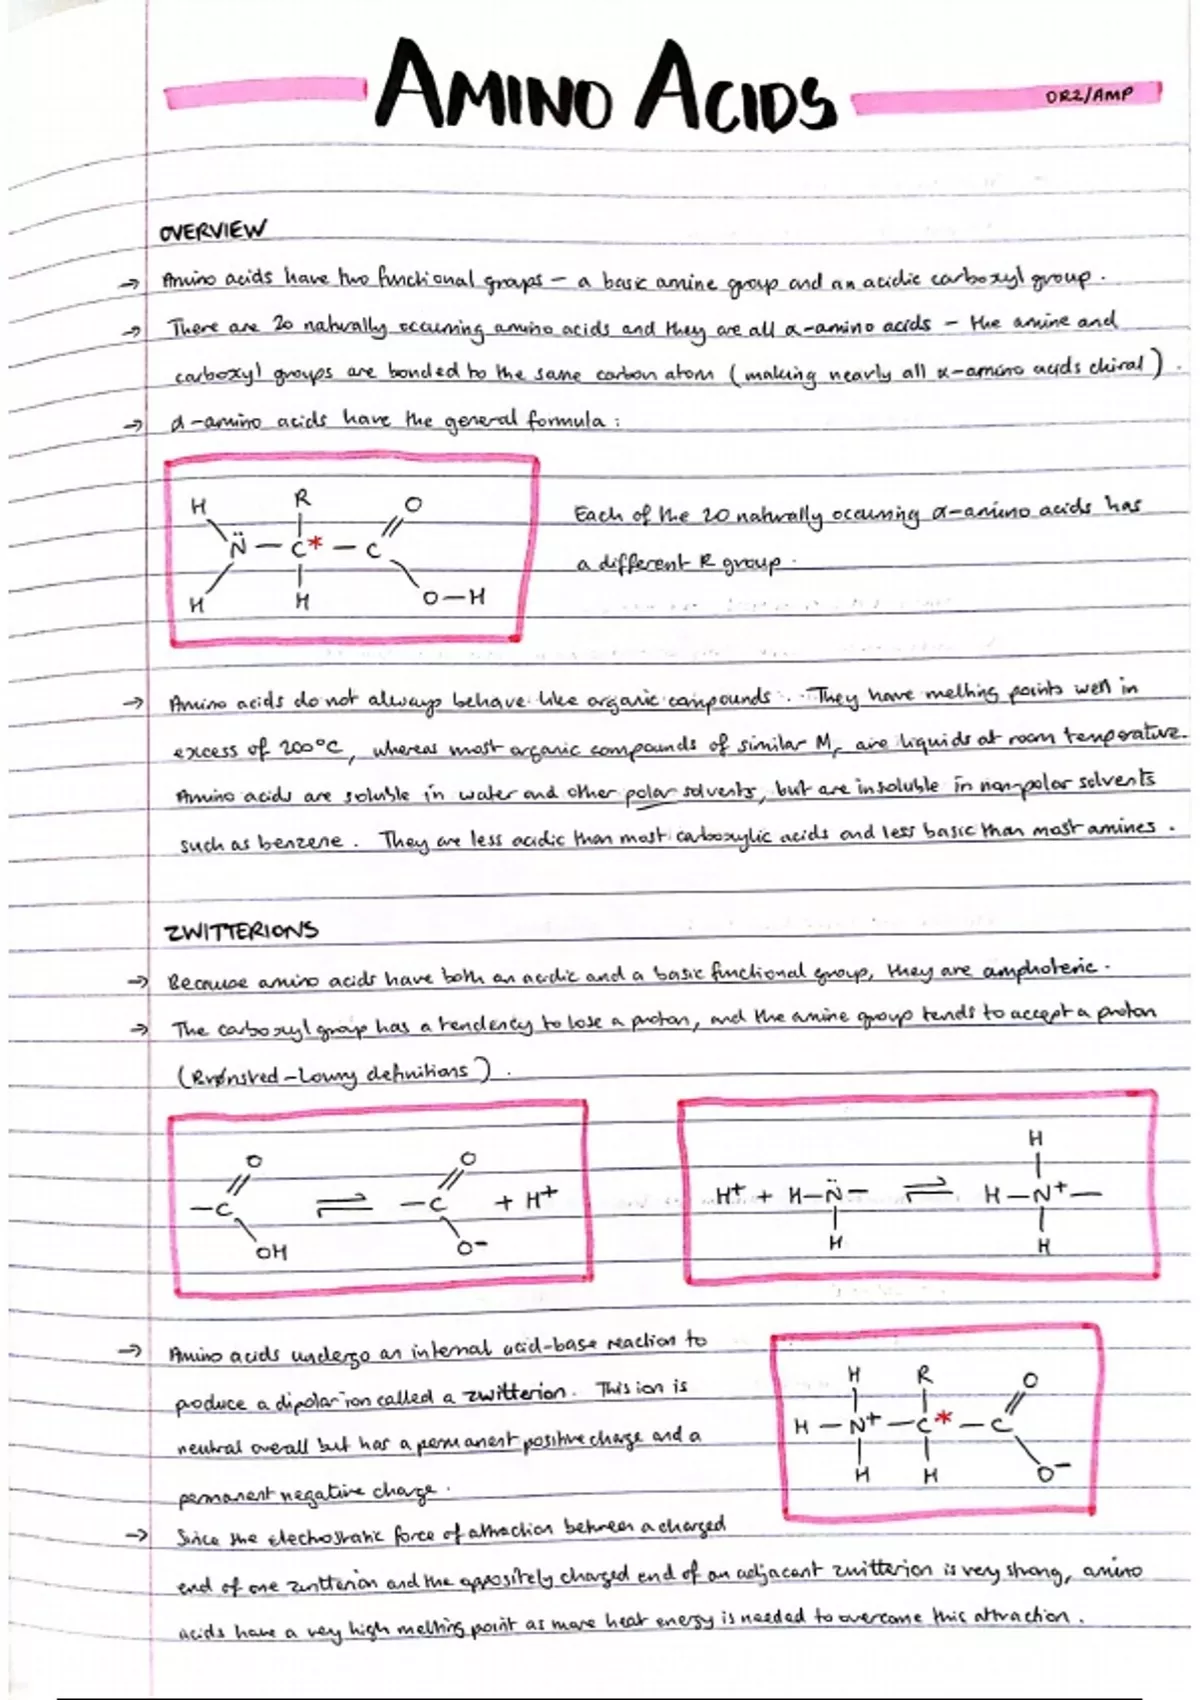 AMINO ACIDS
OR2/AMP
OVERVIEW
→ Amino acids have two functional groups – a basic amine group and an acidic carboxyl group.
→ There are 20 naturally occurring amino acids and they are all α-amino acids – the amine and
carboxyl groups are bonded to the same carbon atom (making nearly all α-amino acids chiral).
→ α-amino acids have the general formula:
H R O
N̈ — C* — C
H H O—H
Each of the 20 naturally occurring α-amino acids has
a different R group.
→ Amino acids do not always behave like organic compounds. They have melting points well in
excess of 200°C, whereas most organic compounds of similar Mr are liquids at room temperature.
Amino acids are soluble in water and other polar solvents, but are insoluble in non-polar solvents
such as benzene. They are less acidic than most carboxylic acids and less basic than most amines.
ZWITTERIONS
→ Because amino acids have both an acidic and a basic functional group, they are amphoteric.
→ The carboxyl group has a tendency to lose a proton, and the amine group tends to accept a proton
(Brønsted–Lowry definitions).
O O
–C ⇌ –C + H⁺
OH O⁻
H
H⁺ + H–N̈– ⇌ H–N⁺–
H H
→ Amino acids undergo an internal acid-base reaction to
produce a dipolar ion called a zwitterion. This ion is
neutral overall but has a permanent positive charge and a
permanent negative charge.
H R O
H – N⁺ – C* – C
H H O⁻
→ Since the electrostatic force of attraction between a charged
end of one zwitterion and the oppositely charged end of an adjacent zwitterion is very strong, amino
acids have a very high melting point as more heat energy is needed to overcome this attraction.